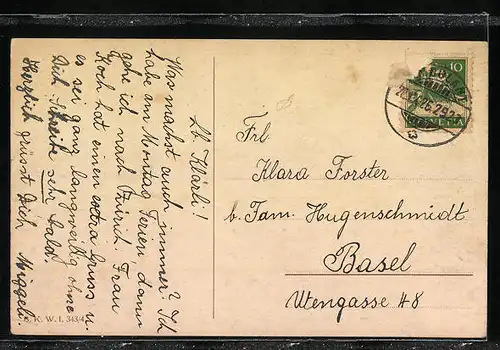 Lb. Klärli!
Was machst auch immer? Ich
habe am Montag Ferien, dann
gehe ich nach Zürich. Frau
Koch hat einen extra Gruss u.
es sei ganz langweilig ohne
Dich. Schreibe sehr bald!
Herzlich grüsst Dich Miggeli.
K. W. I. 343/4
10
HELVETIA
Frl.
Klara Forster
b. Fam. Hugenschmidt
Basel
Utengasse 48